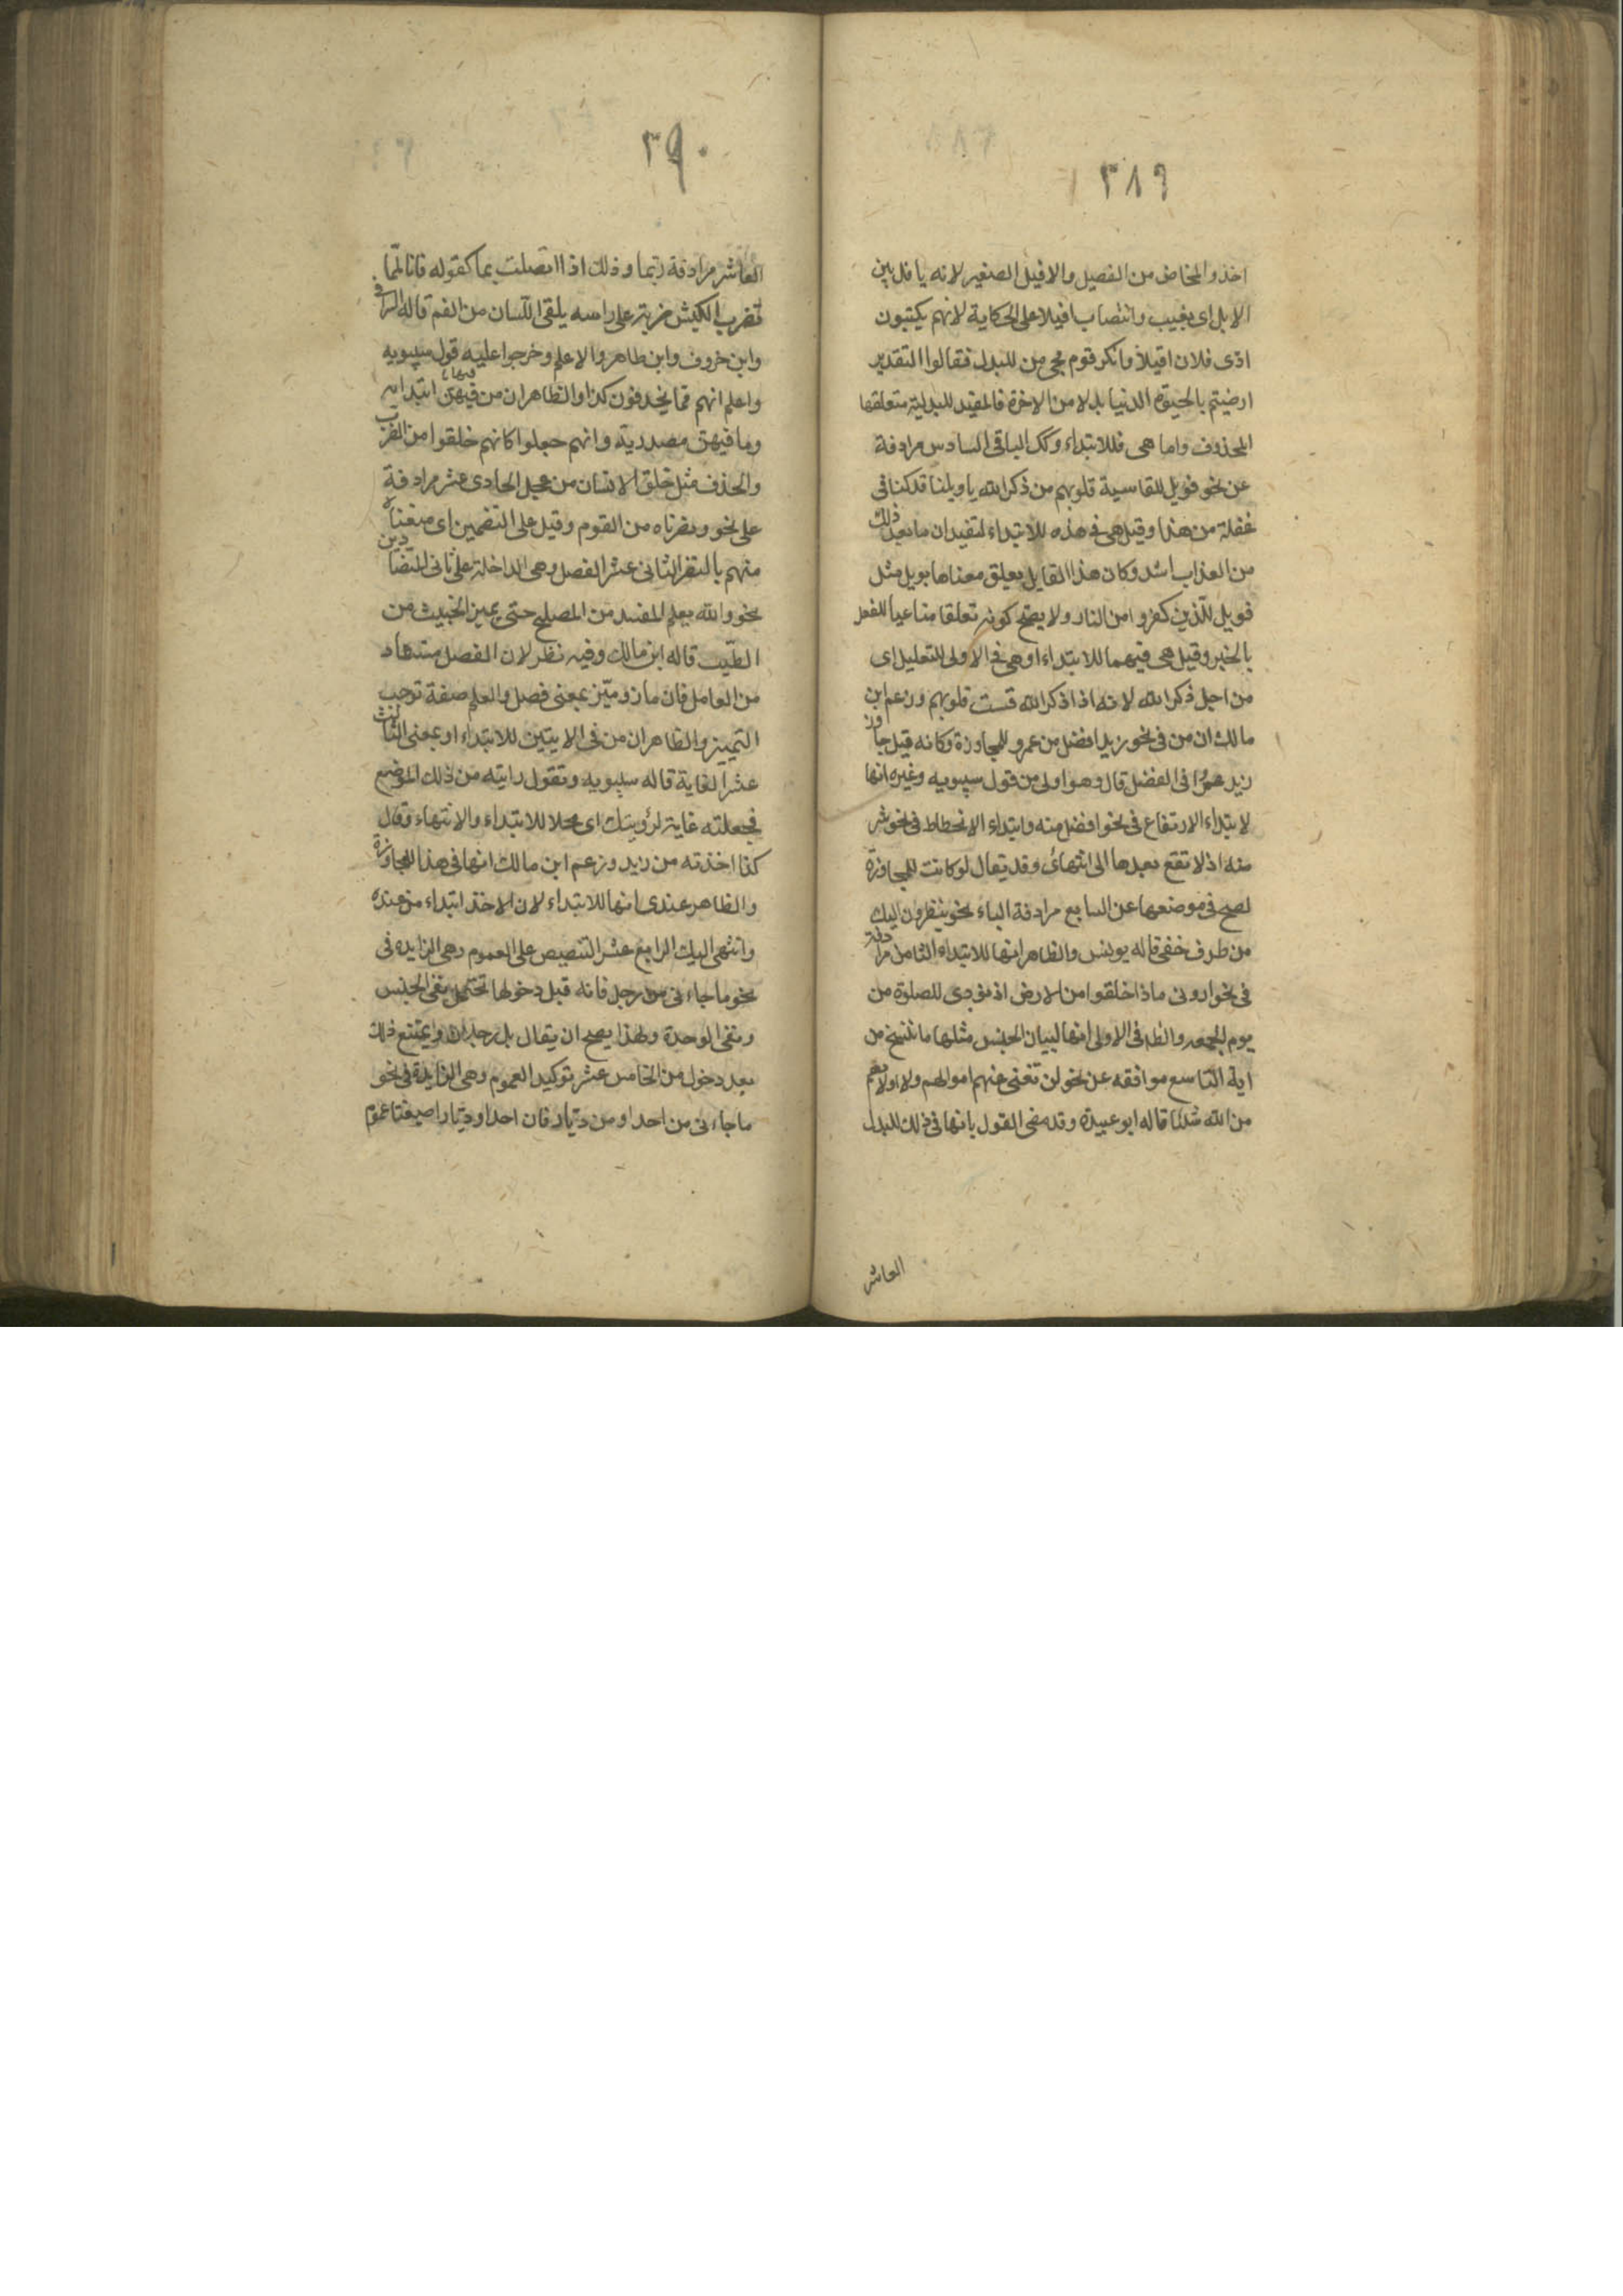 ٣٨٩
اخذوا المخاض من الفصيل والافيل الصغير لانه يافل بين
الابل اى يغيب وانتصاب افيلا على الحكاية لانهم يكتبون
ادى فلان افيلا وانكر قوم مجئ من للبدل فقالوا التقدير
ارضيتم بالحيوة الدنيا بدلا من الاخرة فالمفيد للبدلية متعلقها
المحذوف واما هى فللابتداء وكك الباقى السادس مرادفة
عن نحو فويل للقاسية قلوبهم من ذكر الله يا ويلنا قد كنا فى
غفلة من هذا وقيل هى فى هذه للابتداء لتفيد ان ما بعد ذلك
من العذاب اشد وكان هذا القايل يعلق معناها بويل مثل
فويل للذين كفروا من النار ولا يصح كونه تعلقا صناعيا للفصل
بالخبر وقيل هى فيهما للابتداء او هى فى الاولى للتعليل اى
من اجل ذكر الله لانه اذا ذكر الله قست قلوبهم وزعم ابن
مالك ان من فى نحو زيد افضل من عمرو للمجاوزة وكانه قيل جاوز
زيد عمرًا فى الفضل قال وهو اولى من قول سيبويه وغيره انها
لابتداء الارتفاع فى نحو افضل منه وابتداء الانحطاط فى نحو شر
منه اذ لا تقع بعدها الى انتهائ وقد يقال لو كانت للمجاوزة
لصح فى موضعها عن السابع مرادفة الباء نحو ينظرون اليك
من طرف خفى قاله يونس والظاهر انها للابتداء الثامن مرادفة
فى نحو ارونى ماذا خلقوا من الارض اذ نودى للصلوة من
يوم الجمعه والظ فى الاولى انها لبيان الجنس مثلها ما ننسخ من
اية التاسع موافقه عن نحو لن تغنى عنهم اموالهم ولا اولادهم
من الله شئيا قاله ابو عبيدة وقد مضى القول بانها فى ذلك للبدل
العاشر
٣٩٠
العاشر مرادفة ربما وذلك اذا اتصلت بما كقوله فانا لمما
نضرب الكبش ضربة على راسه يلقى اللسان من الفم قاله السرافى
وابن خروف وابن طاهر والاعلم وخرجوا عليه قول سيبويه
واعلم انهم مما يحذفون كذا والظاهر ان من فيهما ابتدايه
وما فيهن مصدرية وانهم جعلوا كانهم خلقوا من الضرب
والحذف مثل خلق الانسان من عجل الحادى عشر مرادفة
على نحو ونصرناه من القوم وقيل على التضمين اى منعناه
منهم بالنصر الثانى عشر الفصل وهى الداخلة على ثانى المتضادين
نحو والله يعلم المفسد من المصلح حتى يميز الخبيث من
الطيب قاله ابن مالك وفيه نظر لان الفصل مستفاد
من العامل فان ماز وميّز بمعنى فصل والعلم صفة توجب
التمييز والظاهر ان من فى الايتين للابتداء او بمعنى الثالث
عشر الغاية قاله سيبويه وتقول رايته من ذلك الموضع
فجعلته غاية لرؤيتك اى محلا للابتداء والانتهاء وقال
كذا اخذته من زيد وزعم ابن مالك انها فى هذا للمجاوزة
والظاهر عندى انها للابتداء لان الاخذ ابتداء من عنده
وانتهى اليك الرابع عشر التنصيص على العموم وهى الزايده فى
نحو ما جاءنى من رجل فانه قبل دخولها تحتمل نفى الجنس
ونفى الوحدة ولهذا يصح ان يقال بل رجلان ويمتنع ذلك
بعد دخول من الخامس عشر توكيد العموم وهى الزايدة فى نحو
ما جاءنى من احد او من ديّار فان احدا وديّارا صيغتا عموم